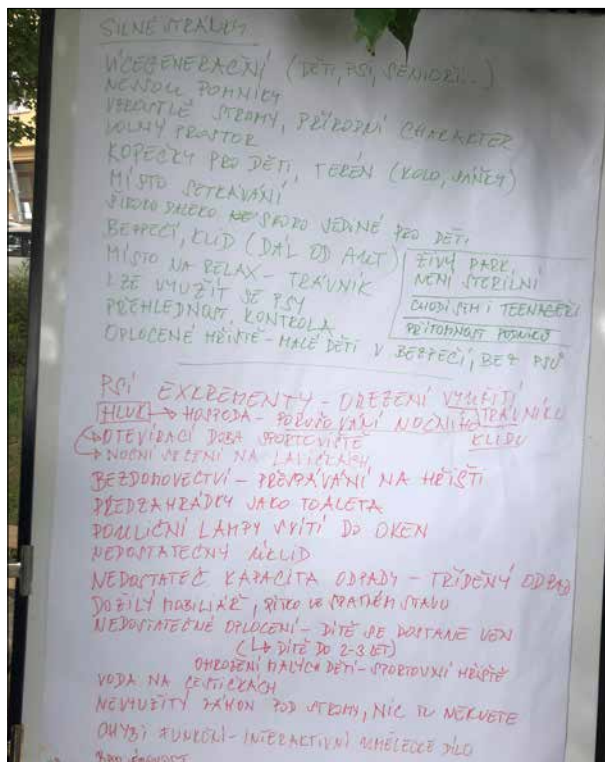 SILNÉ STRÁNKY
VÍCEGENERAČNÍ (DĚTI, PSI, SENIOŘI...)
NEJSOU POMNÍKY
VZROSTLÉ STROMY, PŘÍRODNÍ CHARAKTER
VOLNÝ PROSTOR
KOPEČKY PRO DĚTI, TERÉN (KOLO, SÁŇKY)
MÍSTO SETKÁVÁNÍ
ŠIROKO DALEKO SKORO JEDINÉ PRO DĚTI
BEZPEČÍ, KLID (DÁL OD AUT)
MÍSTO NA RELAX - TRÁVNÍK
LZE VYUŽÍT SE PSY
PŘEHLEDNOST, KONTROLA
ŽIVÝ PARK,
NENÍ STERILNÍ
CHODÍ SEM I TEENAGEŘI
PŘÍTOMNOST PODNIKŮ
OPLOCENÉ HŘIŠTĚ - MALÉ DĚTI V BEZPEČÍ, BEZ PSŮ
PSÍ EXKREMENTY - OMEZENÍ VYUŽITÍ
TRÁVNÍKU
HLUK → HOSPODA - PORUŠOVÁNÍ NOČNÍHO
KLIDU
→ OTEVÍRACÍ DOBA SPORTOVIŠTĚ
→ NOČNÍ SEZENÍ NA LAVIČKÁCH
BEZDOMOVECTVÍ - PŘESPÁVÁNÍ NA HŘIŠTI
PŘEDZAHRÁDKY JAKO TOALETA
POULIČNÍ LAMPY SVÍTÍ DO OKEN
NEDOSTATEČNÝ ÚKLID
NEDOSTATEČ KAPACITA ODPADY - TŘÍDĚNÝ ODPAD
DOŽILÝ MOBILIÁŘ, PÍTKO VE ŠPATNÉM STAVU
NEDOSTATEČNÉ OPLOCENÍ - DÍTĚ SE DOSTANE VEN
(↳ DÍTĚ DO 2-3 LET)
OHROŽENÍ MALÝCH DĚTÍ - SPORTOVNÍ HŘIŠTĚ
VODA NA CESTIČKÁCH
NEVYUŽITÝ ZÁHON POD STROMY, NIC TU NEKVETE
CHYBÍ FUNKČNÍ - INTERAKTIVNÍ UMĚLECKÉ DÍLO